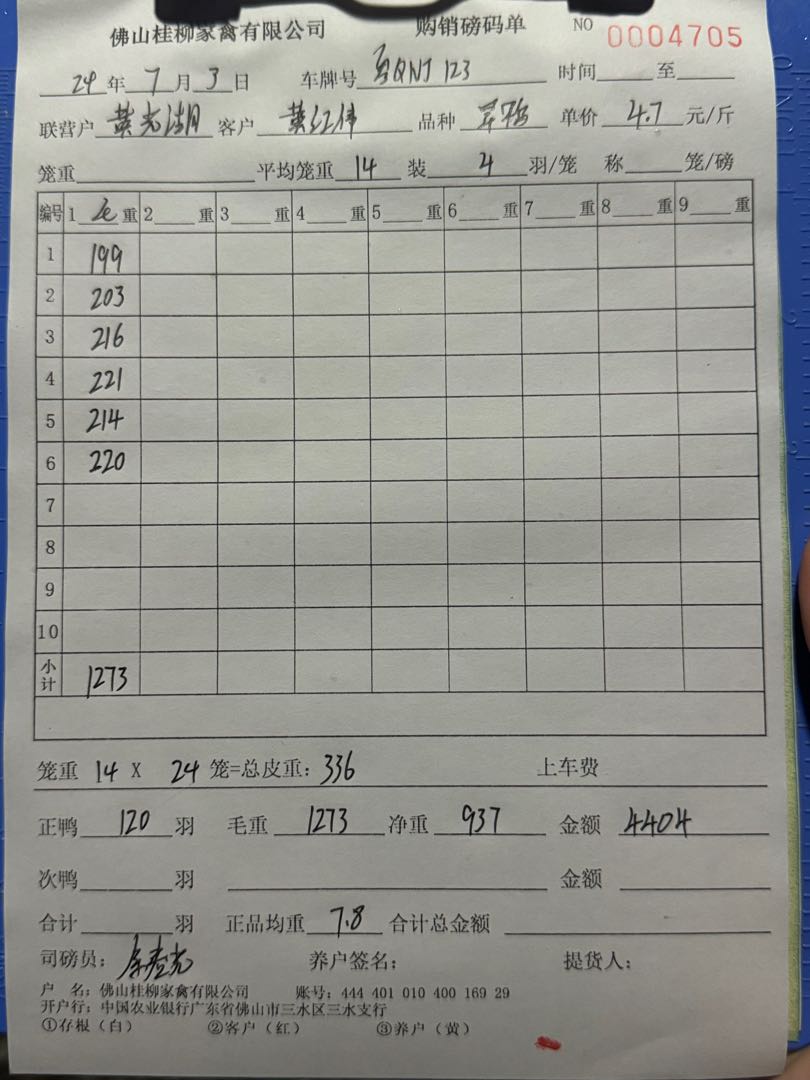 佛山桂柳家禽有限公司 购销磅码单 NO 0004705
24年7月3日 车牌号 QNJ 123 时间 至
联营户 黄志湖 客户 黄红伟 品种 单价 4.7 元/斤
笼重 平均笼重 14 装 4 羽/笼 称 笼/磅
编号 1 毛 重 2 重 3 重 4 重 5 重 6 重 7 重 8 重 9 重
1 199
2 203
3 216
4 221
5 214
6 220
7
8
9
10
小计 1273
笼重 14 X 24 笼=总皮重：336 上车费
正鸭 120 羽 毛重 1273 净重 937 金额 4404
次鸭 羽 金额
合计 羽 正品均重 7.8 合计总金额
司磅员： 养户签名： 提货人：
户 名：佛山桂柳家禽有限公司 账号：444 401 010 400 169 29
开户行：中国农业银行广东省佛山市三水区三水支行
①存根（白） ②客户（红） ③养户（黄）